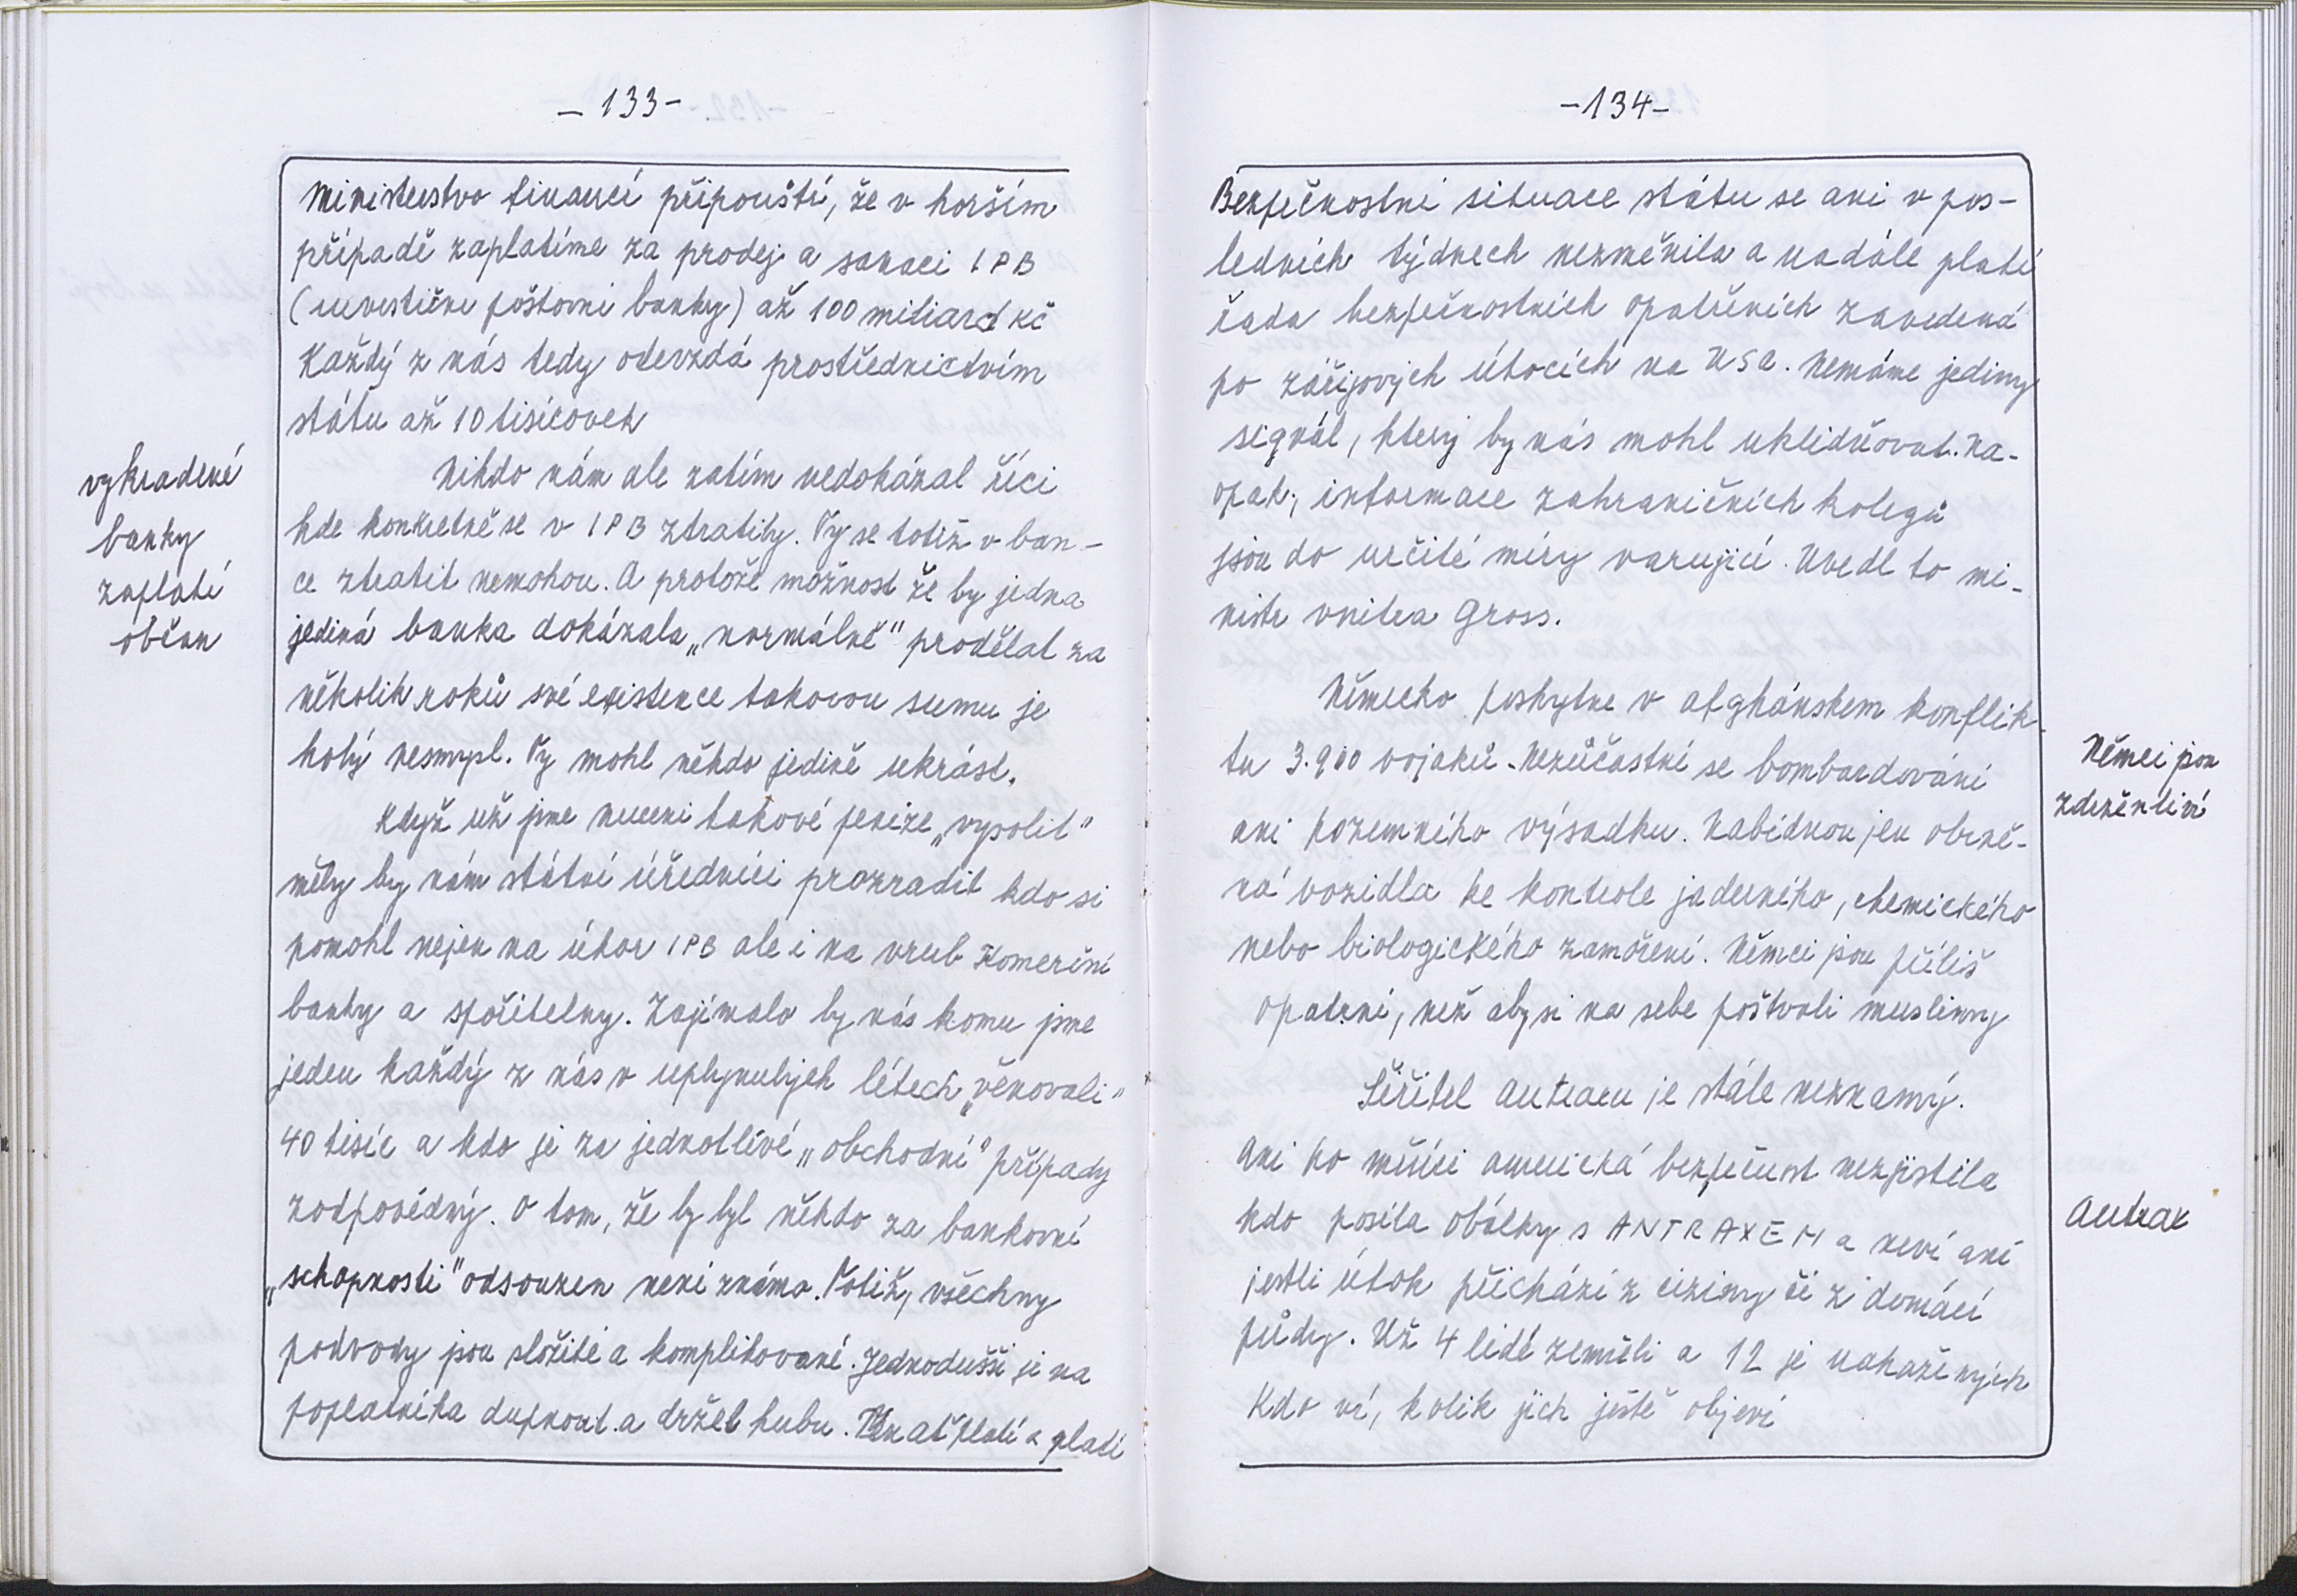 - 133 -
Ministerstvo financí připouští, že v horším
případě zaplatíme za prodej a sanaci IPB
(investiční poštovní banky) až 100 miliard kč
Každý z nás tedy odevzdá prostřednictvím
státu až 10 tisícovek
Nikdo nám ale zatím nedokázal říci
kde konkretně se v IPB ztratily. Ty se totiž v ban-
ce ztratit nemohou. A protože možnost že by jedna
jediná banka dokázala „normálně" prodělat za
několik roků své existence takovou sumu je
holý nesmysl. Ty mohl někdo jedině ukrást.
Když už jsme nuceni takové peníze „vysolit"
měly by nám státní úředníci prozradit kdo si
pomohl nejen na úkor IPB ale i na vrub Komerční
banky a spořitelny. Zajímalo by nás komu jsme
jeden každý z nás v uplynulých létech „věnovali"
40 tisíc a kdo je za jednotlivé „obchodní" případy
zodpovědný. O tom, že by byl někdo za bankovní
„schopnosti" odsouzen není známo. Totiž, všechny
podvody jsou složité a komplikované. Jednodušší je na
poplatníka dupnout a držet hubu. Ten ať platí a platí
vykradené
banky
zaplatí
občan
- 134 -
Bezpečnostní situace státu se ani v pos-
ledních týdnech nezměnila a nadále platí
řada bezpečnostních opatřeních zavedená
po zářijových útocích na USA. Nemáme jediny
signál, který by nás mohl uklidňovat. Na-
opak, informace zahraničních kolegů
jsou do určité míry varující. Uvedl to mi-
nistr vnitra Gross.
Německo poskytne v afghánskem konflik
tu 3.900 vojaků. Nezůčastní se bombardování
ani pozemního výsadku. Nabídnou jen obrně-
ná vozidla ke kontrole jaderného, chemického
nebo biologického zamoření. Němci jsou příliš
opatrní, než aby si na sebe poštvali muslimy
Němci jsou
zdrženliví
Šiřitel antraxu je stále neznamý.
Ani po měsíci americká bezpečnost nezjistila
kdo posíla obálky s ANTRAXEM a neví ani
jestli útok přichází z ciziny či z domácí
půdy. Už 4 lidé zemřeli a 12 je nakažených
Kdo ví, kolik jich ještě objeví
Antrax